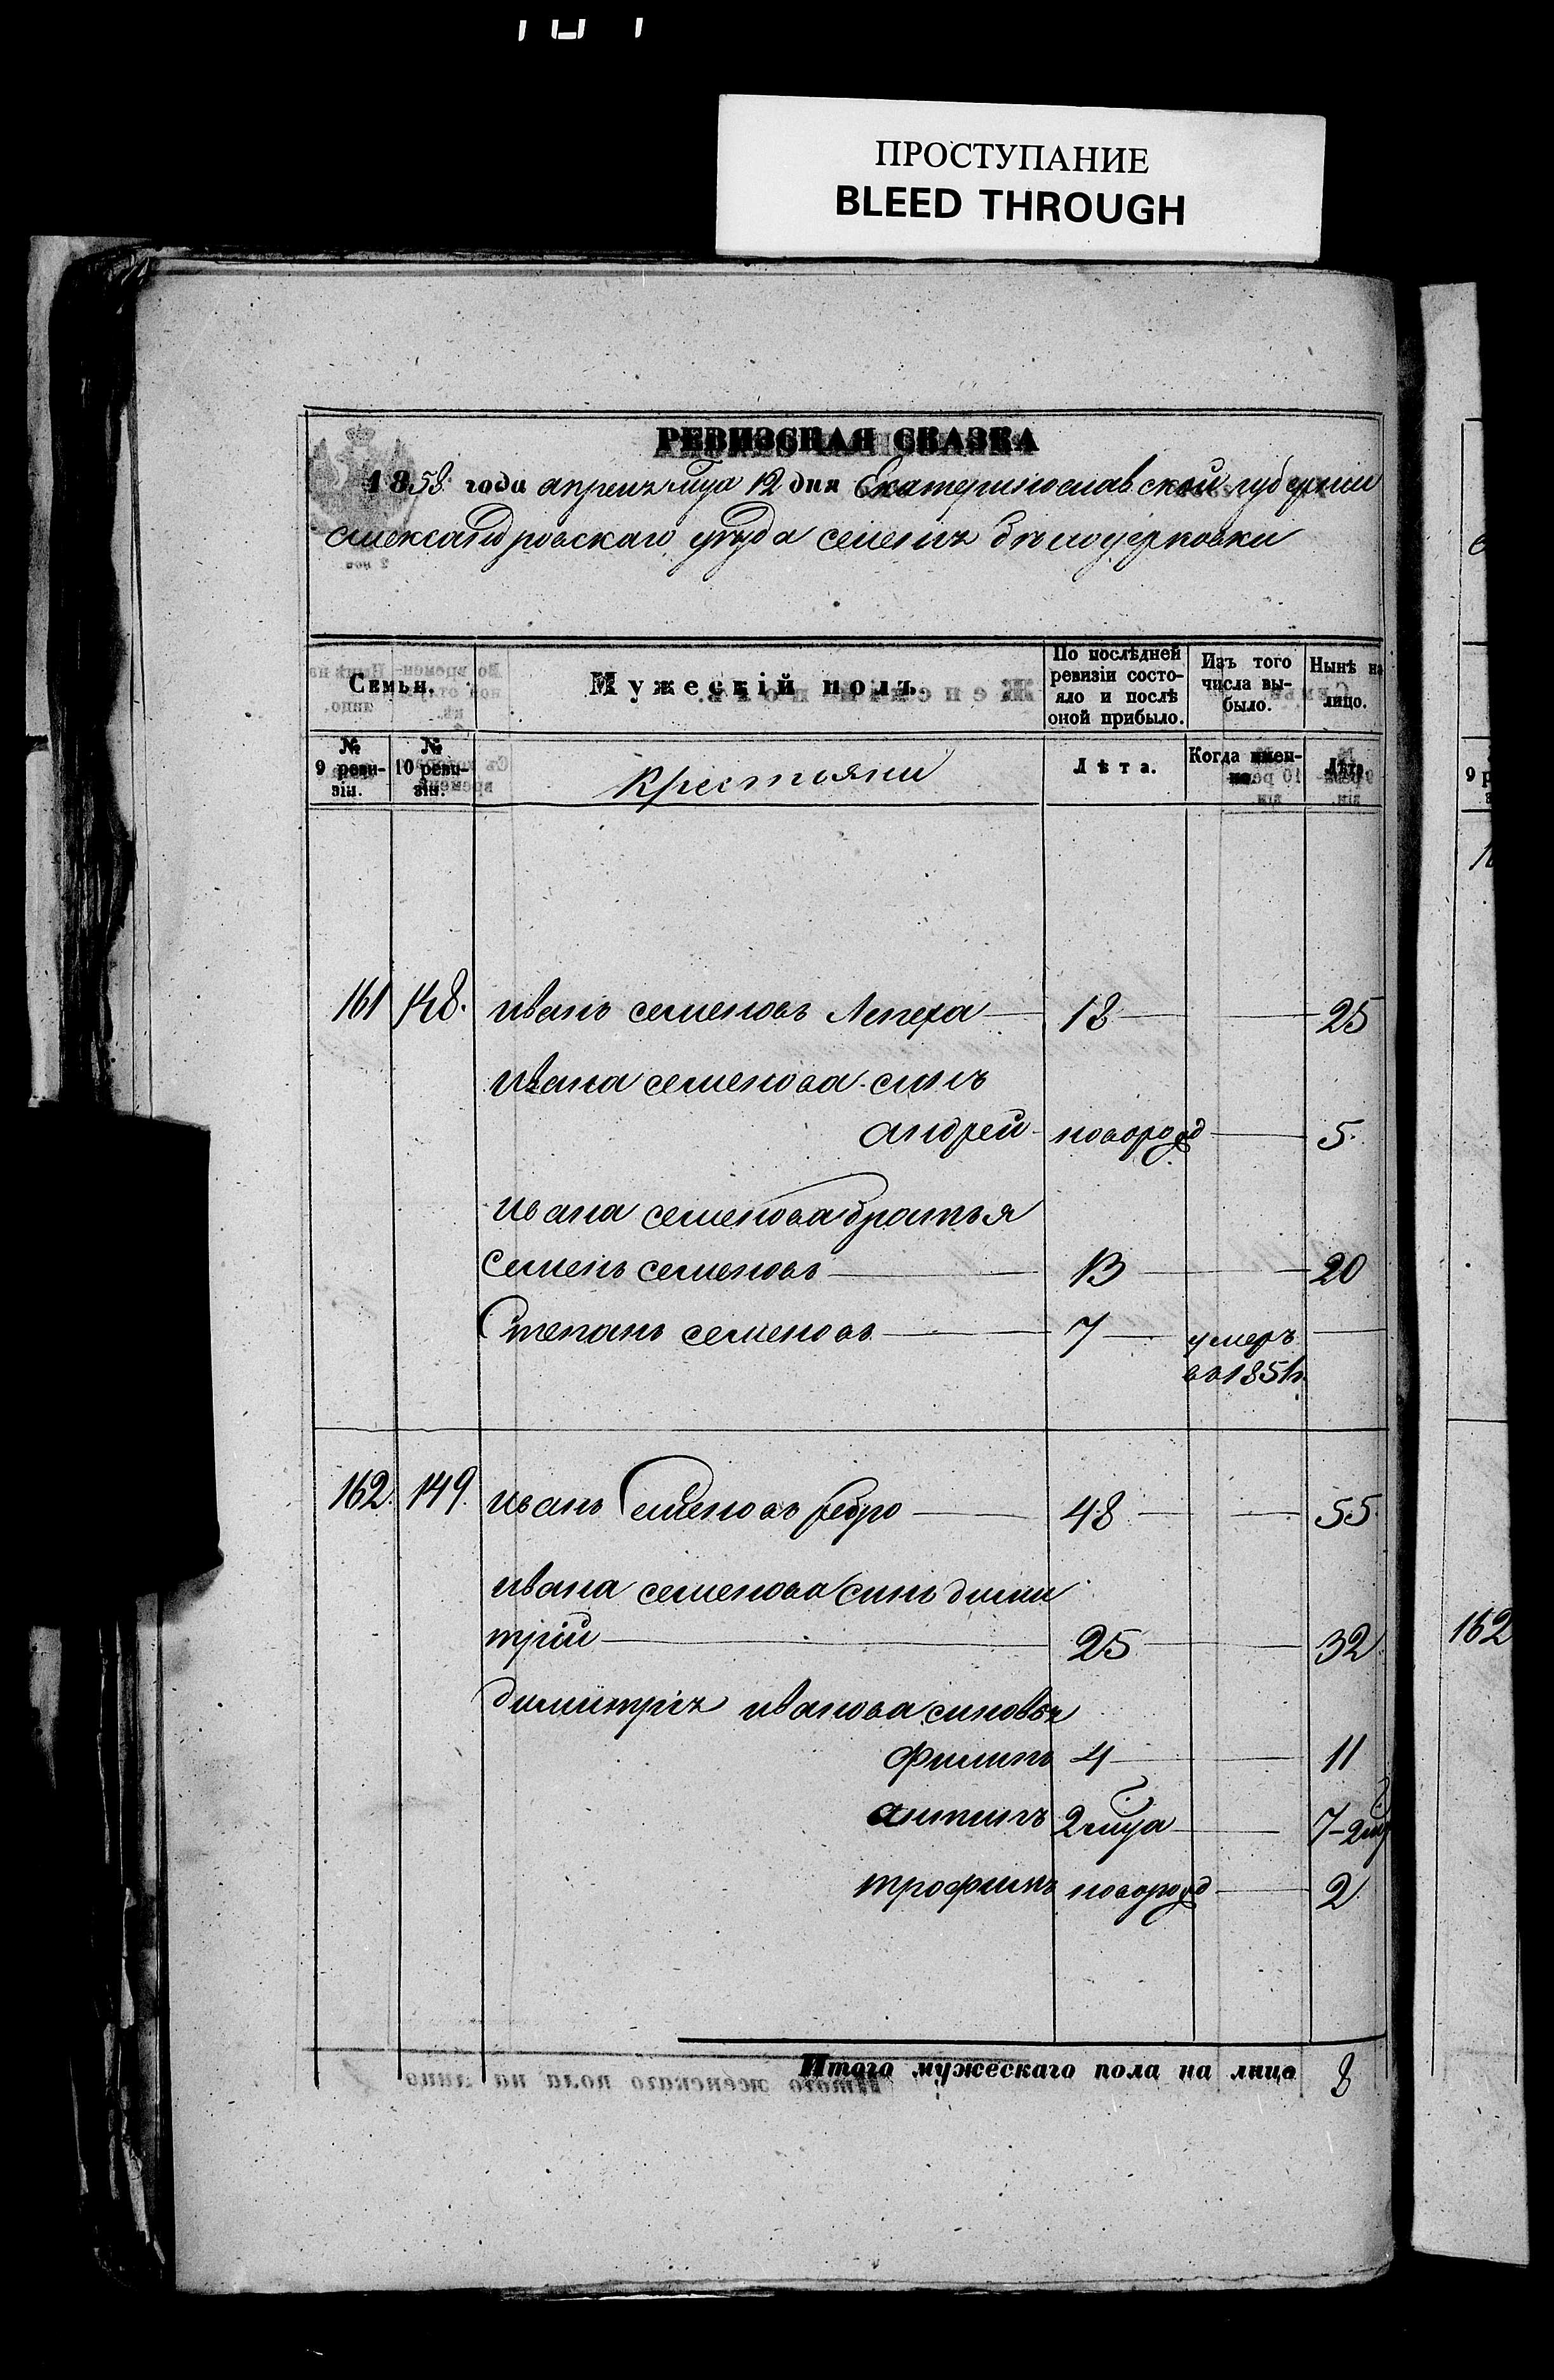 ПРОСТУПАНИЕ
BLEED THROUGH
РЕВИЗСКАЯ СКАЗКА
1858 года апреля мца 12 дня Екатеринославской губернии
александровскаго уезда селения белоцерковки
Семьи.
Мужескій полъ.
По послѣдней ревизіи состояло и послѣ оной прибыло.
Изъ того числа выбыло.
Нынѣ на лицо.
№ 9 ревизіи.
№ 10 ревизіи.
крестьяни
Лѣта.
Когда именно.
Лѣта.
161 148. иванъ семеновъ Лепеха 18 25
ивана семенова синъ
андрей новорожд 5.
ивана семенова братья
Семенъ семеновъ 13 20
Степанъ семеновъ 7 умеръ
въ 1851г.
162. 149. иванъ Семеновъ ребро 48 55.
ивана семенова синъ дими
трій 25 32
димитрія иванова синовья
филипъ 4 11
антипъ 2 мца 7-2 мц
трофимъ новорожд 2
Итого мужескаго пола на лицо 8
162